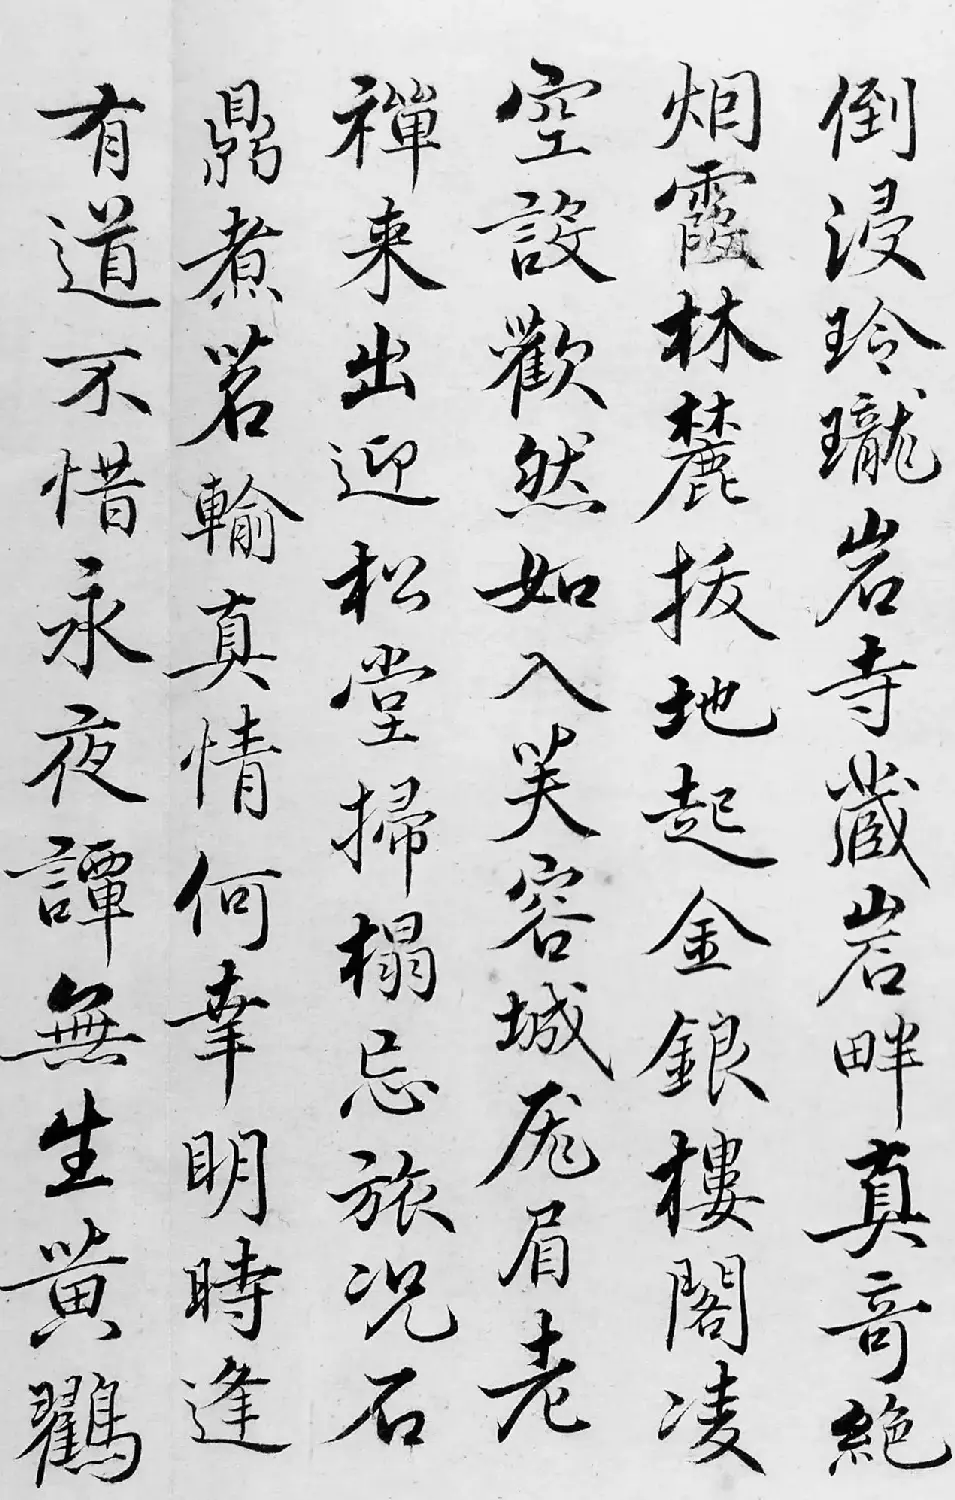 倒浸玲瓏岩寺藏岩畔真奇絕
烟霞林麓拔地起金銀樓閣凌
空設歡然如入芙容城厖眉老
禪来出迎松堂掃榻忘旅况石
鼎煮茗輸真情何幸明時逢
有道不惜永夜譚無生黄鸛